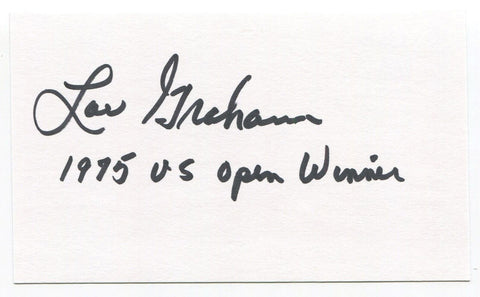 Lou Graham
1975 US Open Winner